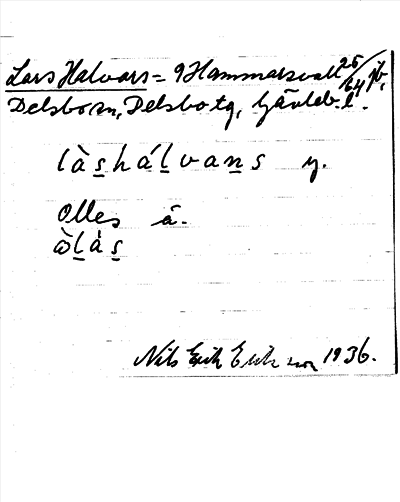 Lars Halvars = 9 Hammarsvall 25/64 jb,
Delsbo sn, Delsbo tg, Gävleb. l.
làs̲hál̲van̲s y.
Olles ä.
òl̲às̲
Nils Erik Eriksson 1936.